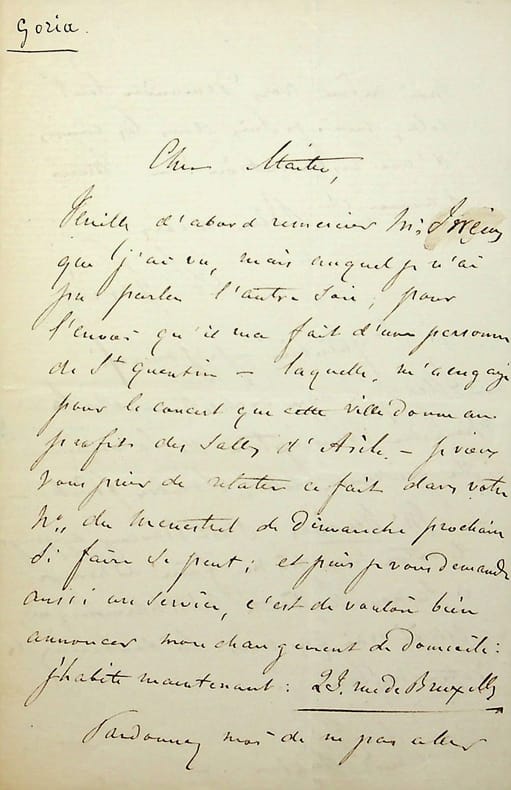 Goria.
Cher Maître,
Veuillez d'abord remercier Mr
que j'ai vu, mais auquel je n'ai
pu parler l'autre soir, pour
l'envoi qu'il m'a fait d'une personne
de St quentin – laquelle, m'a engagé
pour le concert que cette ville donne au
profits des Salles d'Asile. – je viens
vous prier de relater ce fait dans votre
No. du menestrel de dimanche prochain
Si faire se peut; et puis je vous demande
aussi un service, c'est de vouloir bien
annoncer mon changement de domicile:
j'habite maintenant: rue de Bruxelles
Pardonnez moi de ne pas aller